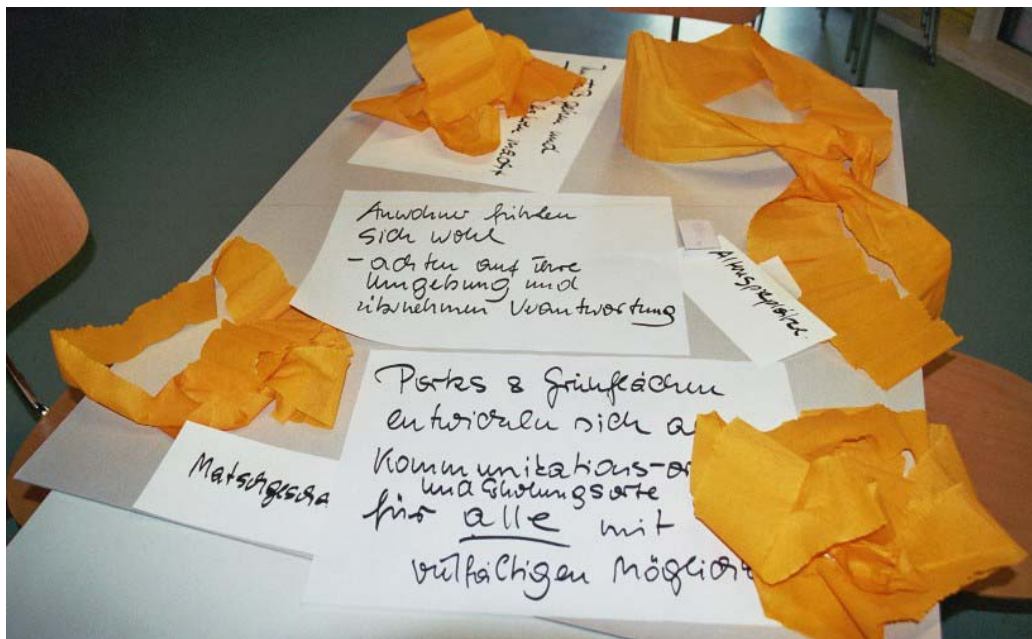 Grün und
Anwohner fühlen
sich wohl
- achten auf ihre
Umgebung und
übernehmen Verantwortung
Parks & Grünflächen
entwickeln sich a
Kommunikations-or
und Erholungsorte
für alle mit
vielfältigen Möglich
Matschgescha